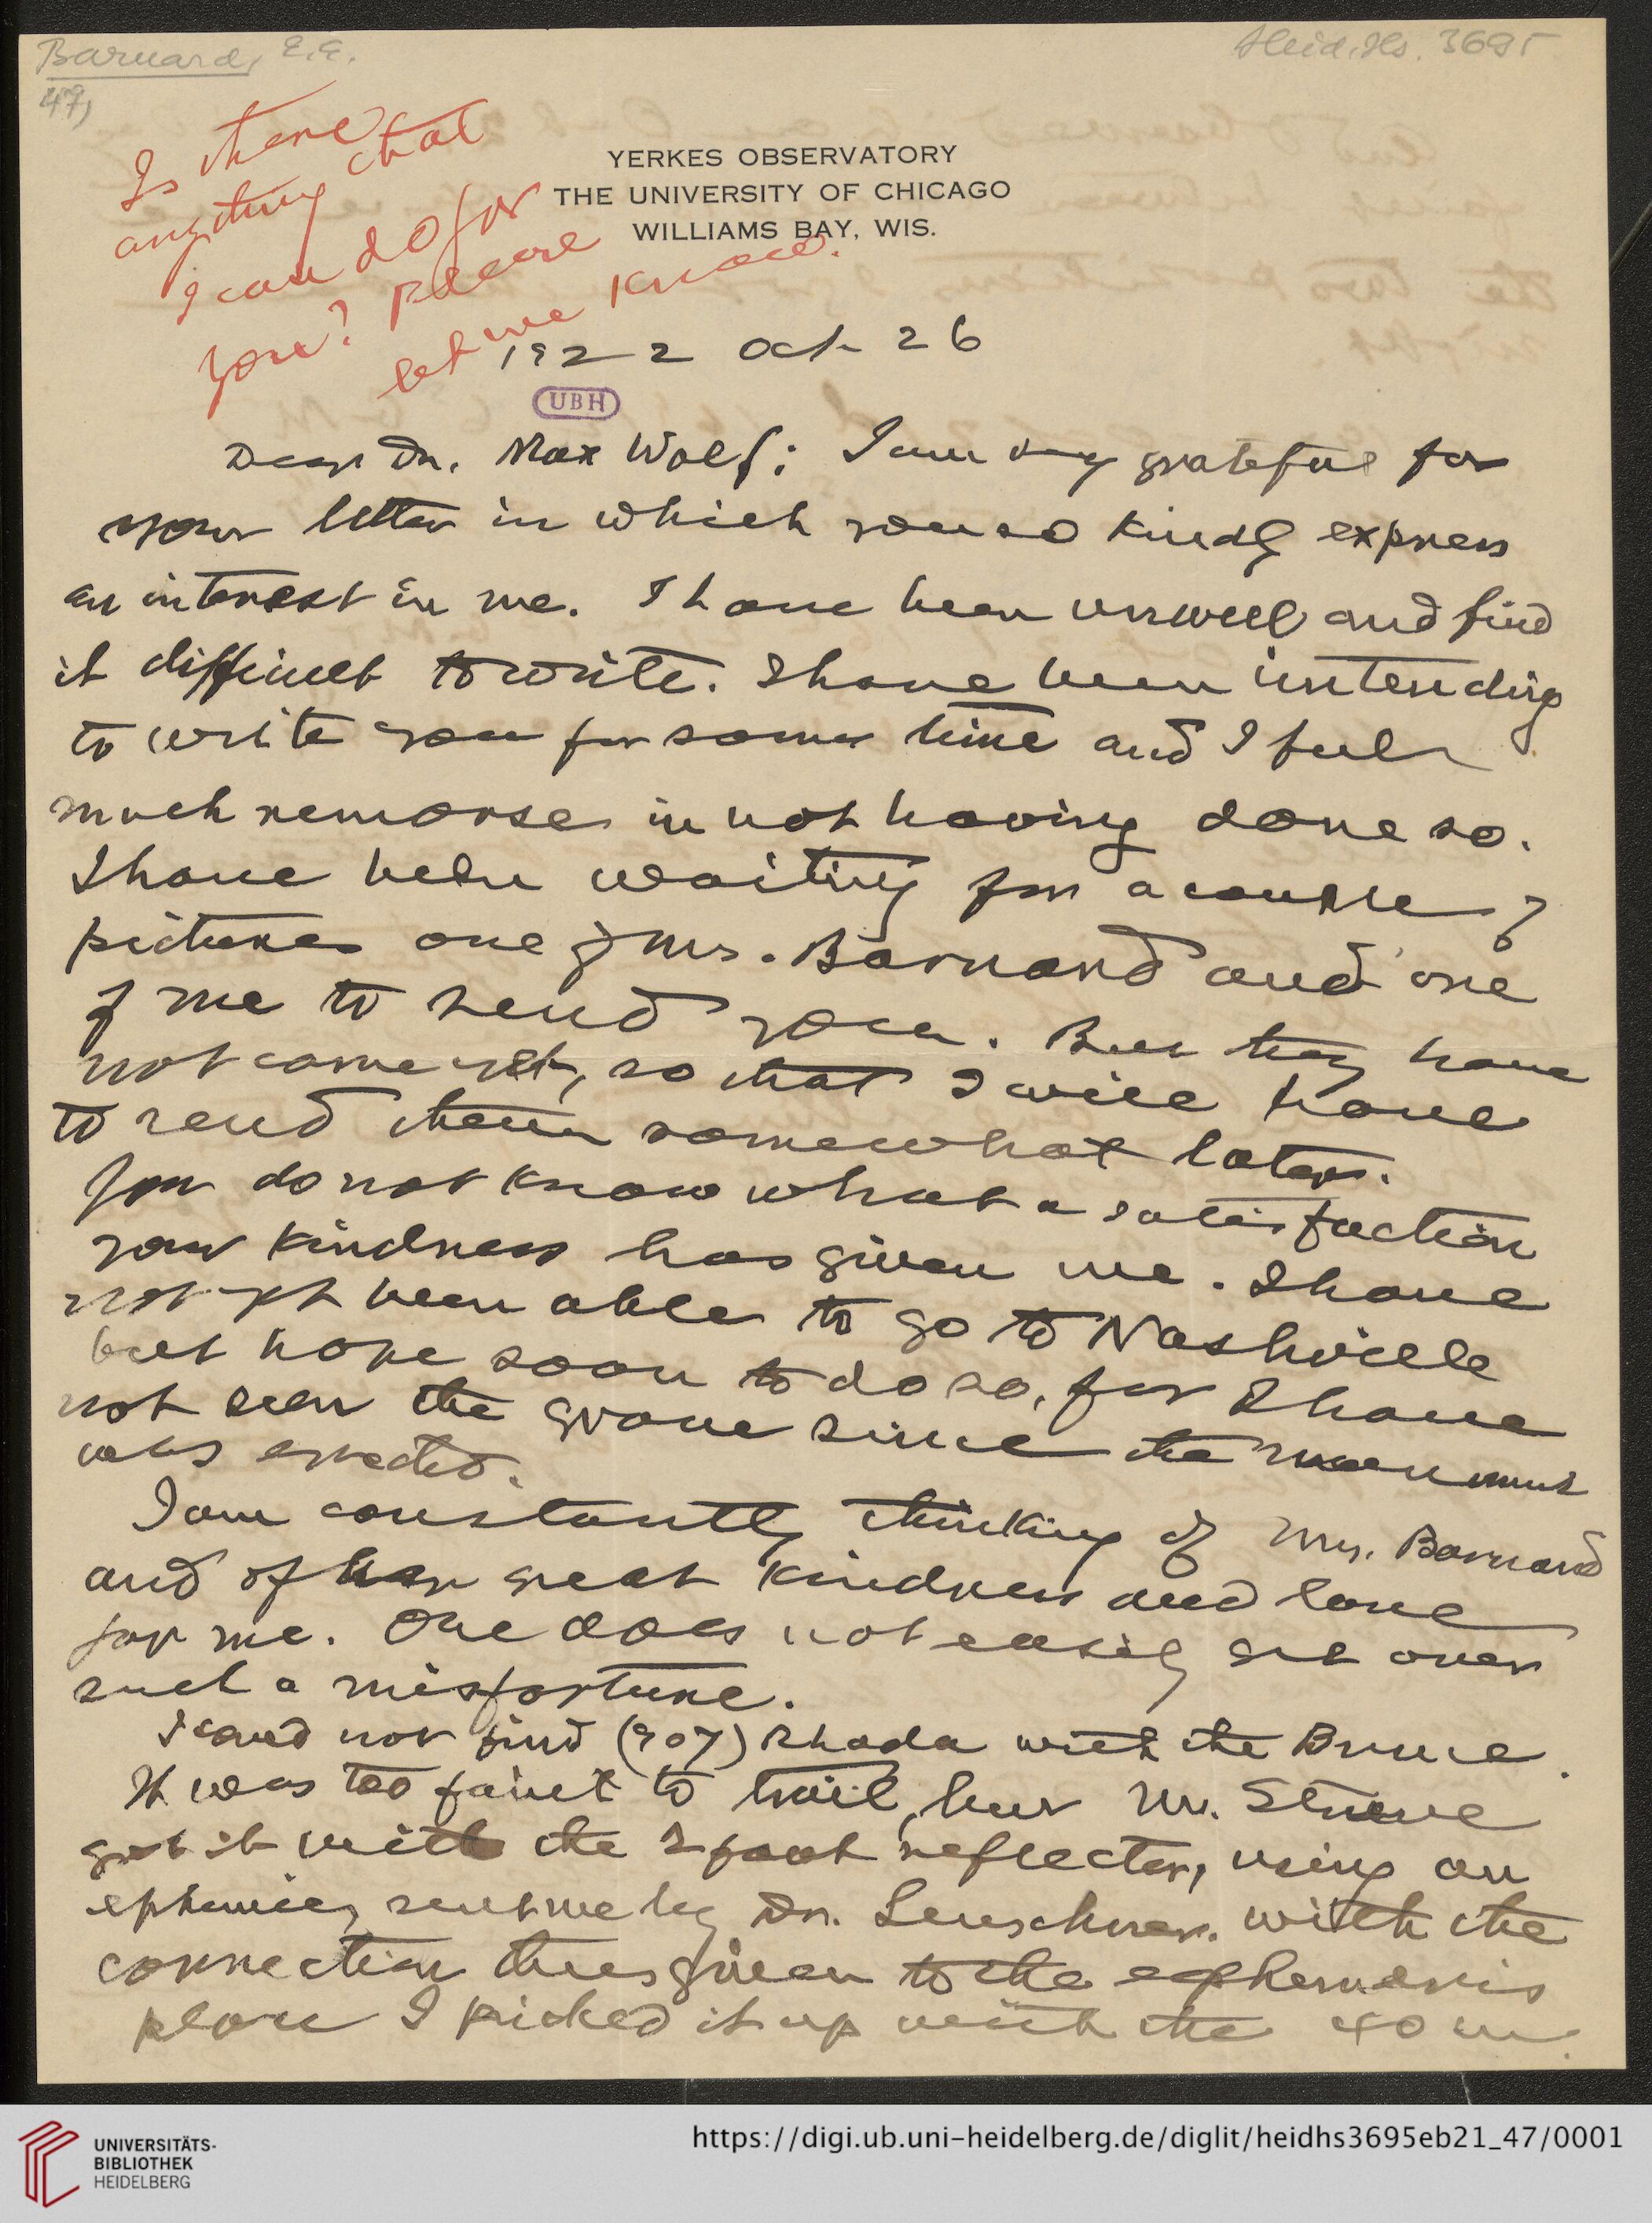 Barnard, E.E.
Heid. Hs. 3695
47)
Is there
anything that
I can do for
you? Please
let me know.
YERKES OBSERVATORY
THE UNIVERSITY OF CHICAGO
WILLIAMS BAY, WIS.
1922 Oct 26
UBH
Dear Dr. Max Wolf: I am very grateful for
your letter in which you so kindly express
an interest in me. I have been unwell and find
it difficult to write. I have been intending
to write you for some time and I feel
much remorse in not having done so.
I have been waiting for a couple of
pictures one of Mrs. Barnard and one
of me to send you. But they have
not come yet, so that I will have
to send them somewhat later.
You do not know what a satisfaction
your kindness has given me. I have
not yet been able to go to Nashville
but hope soon to do so, for I have
not seen the grave since the monument
was erected.
I am constantly thinking of Mrs. Barnard
and of her great kindness and love
for me. One does not easily get over
such a misfortune.
I could not find (907) Rhoda with the Bruce.
It was too faint to trail, but Mr. Struve
got it with the 2 foot reflector, using an
ephemeris sent me by Dr. Leuschner. With the
correction thus given to the ephemeris
place I picked it up with the 40 in.
UNIVERSITÄTS-
BIBLIOTHEK
HEIDELBERG
https://digi.ub.uni-heidelberg.de/diglit/heidhs3695eb21_47/0001